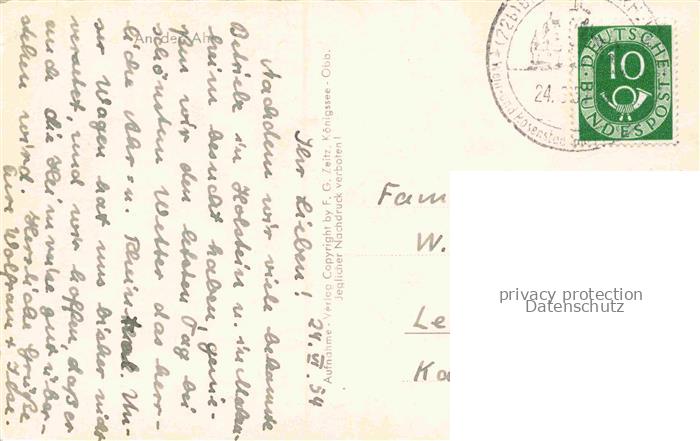 An der Ahr
Ihr Lieben! 24.VI.54
Nachdem wir viele bekannte
Betriebe in Holstein u. in Meden-
heim besucht haben, genie-
ßen wir den letzten Tag bei
schönstem Wetter das herr-
liche Ahr- u. Rheintal. Un-
ser Wagen hat uns bisher nicht
versetzt, und wir hoffen, daß er
auch die Heimreise gut über-
stehen wird. Herzliche Grüße
Eure Wolfram + Ilse.
Aufnahme - Verlag Copyright by F. G. Zeitz, Königssee - Obb.
Jeglicher Nachdruck verboten!
(22b)
24.
und Rosenstadt
DEUTSCHE
10
BUNDESPOST
Fam
W.
Le
Ka
privacy protection
Datenschutz